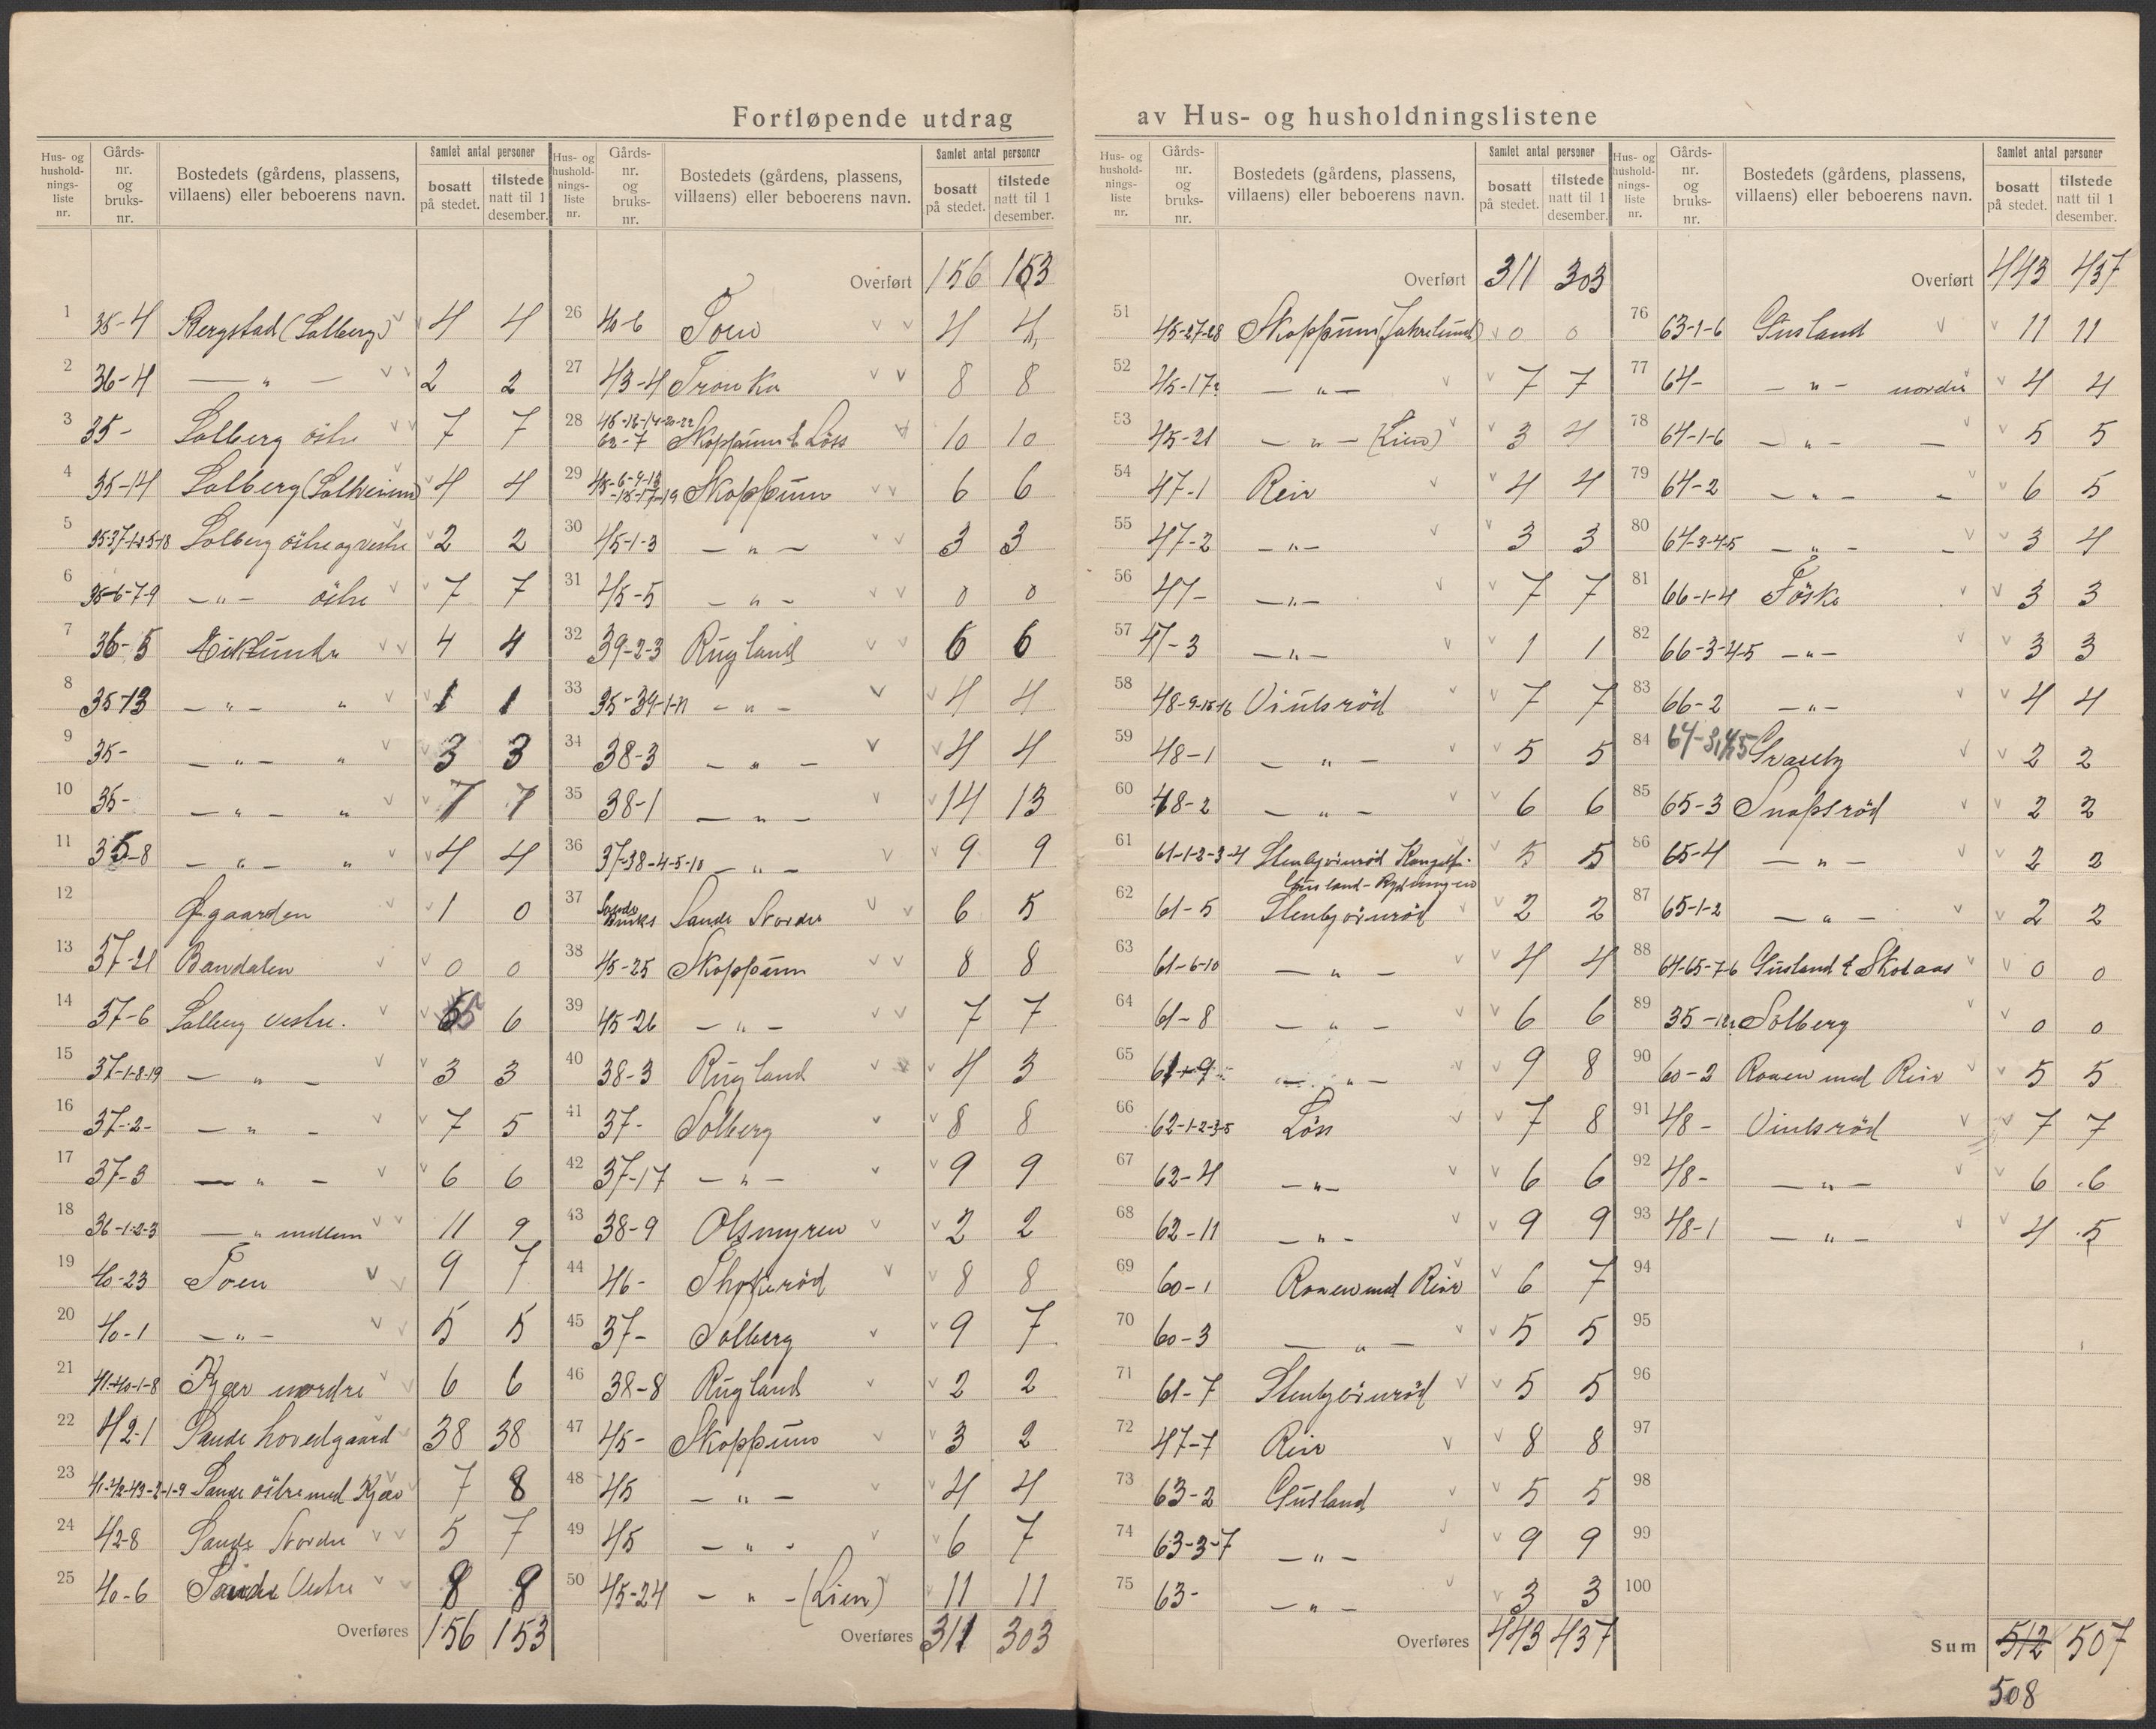 Fortløpende utdrag av Hus- og husholdningslistene
Hus- og hushold- nings- liste nr. | Gårds- nr. og bruks- nr. | Bostedets (gårdens, plassens, villaens) eller beboerens navn. | Samlet antal personer | bosatt på stedet. | tilstede natt til 1 desember.
1 35-4 Bergstad (Solberg) 4 4
2 36-4 — " — 2 2
3 35- Solberg östre 7 7
4 35-14 Solberg (Solheim) 4 4
5 35-37-1-2-5-18 Solberg östre og vestre 2 2
6 35-6-7-9 — " — östre 7 7
7 36-5 Eiklund 4 4
8 35-13 — " — " 1 1
9 35- — " — " 3 3
10 35- — " — " 7 7
11 35-8 — " — " 4 4
12 Øgaarden 1 0
13 37-21 Bandalen 0 0
14 37-6 Solberg vestre. 5 6
15 37-1-8-19 — " — 3 3
16 37-2- — " — 7 5
17 37-3 — " — 6 6
18 36-1-2-3 — " mellem 11 9
19 40-23 Toen 9 7
20 40-1 — " — 5 5
21 41-40-1-8 Kjær nordre 6 6
22 42-1 Sande hovedgaard 38 38
23 41-42-43-2-1-9 Sande östre med Kjær 7 8
24 42-8 Sande Nordre 5 7
25 40-6 Sande Vestre 8 8
Overføres 156 153
Hus- og hushold- nings- liste nr. | Gårds- nr. og bruks- nr. | Bostedets (gårdens, plassens, villaens) eller beboerens navn. | Samlet antal personer | bosatt på stedet. | tilstede natt til 1 desember.
Overført 156 153
26 40-6 Toen 4 4
27 43-4 Tronka 8 8
28 45-16-14-20-22 62-7 Skoppum & Löss 10 10
29 Skoppum 6 6
30 45-1-3 — " — 3 3
31 45-5 — " — 0 0
32 39-2-3 Rugland 6 6
33 35-39-1-11 — " — 4 4
34 38-3 — " — 4 4
35 38-1 — " — 14 13
36 37-38-4-5-10 — " — 9 9
37 Sande Bruks Sande Nordre 6 5
38 45-25 Skoppum 8 8
39 45-26 — " — 7 7
40 38-3 Rugland 4 3
41 37- Solberg 8 8
42 37-17 — " — 9 9
43 38-9 Olsmyren 2 2
44 46- 8 8
45 37- Solberg 9 7
46 38-8 Rugland 2 2
47 45- Skoppum 3 2
48 45 — " — 4 4
49 45 — " - 6 7
50 45-24 — " — (Lien) 11 11
Overføres 311 303
Hus- og hushold- nings- liste nr. | Gårds- nr. og bruks- nr. | Bostedets (gårdens, plassens, villaens) eller beboerens navn. | Samlet antal personer | bosatt på stedet. | tilstede natt til 1 desember.
Overført 311 303
51 45-27-28 Skoppum (Jahrelund) 0 0
52 45-17 — " — 7 7
53 45-21 — " — (Lien) 3 4
54 47-1 Reir 4 4
55 47-2 — " — 3 3
56 47- — " — 7 7
57 47-3 — " — 1 1
58 48-9-15-16 Viulsröd 7 7
59 48-1 — " — 5 5
60 48-2 — " — 6 6
61 61-1-2-3-4 Stenbjörnröd 5 5
Gusland-Rydningen
62 61-5 Stenbjörnröd 2 2
63 61-6-10 — " — 4 4
64 61-8 — " — 6 6
65 61-9 — " — 9 8
66 62-1-2-3-5 Löss 7 8
67 62-4 — " — 6 6
68 62-11 — " — 9 9
69 60-1 Ramen med Reir 6 7
70 60-3 — " — 5 5
71 61-7 Stenbjörnröd 5 5
72 47-7 Reir 8 8
73 63-2 Gusland 5 5
74 63-3-7 — " — 9 9
75 63- — " — 3 3
Overføres 443 437
Hus- og hushold- nings- liste nr. | Gårds- nr. og bruks- nr. | Bostedets (gårdens, plassens, villaens) eller beboerens navn. | Samlet antal personer | bosatt på stedet. | tilstede natt til 1 desember.
Overført 443 437
76 63-1-6 Gusland 11 11
77 64- — " — nordre 4 4
78 64-1-6 — " — — 5 5
79 64-2 — " — — 6 5
80 64-3-4-5 — " — — 3 4
81 66-1-4 Föske 3 3
82 66-3-4-5 — " — 3 3
83 66-2 — " — 4 4
84 2 2
85 65-3 Snapsröd 2 2
86 65-4 — " — 2 2
87 65-1-2 — " — 2 2
88 64-65-7-6 Gusland & Skotaas 0 0
89 Solberg 0 0
90 60-2 Ramen med Reir 5 5
91 48- Viulsröd 7 7
92 48- — " — 6 6
93 48-1 — " — 4 5
94
95
96
97
98
99
100
Sum 512 507
508